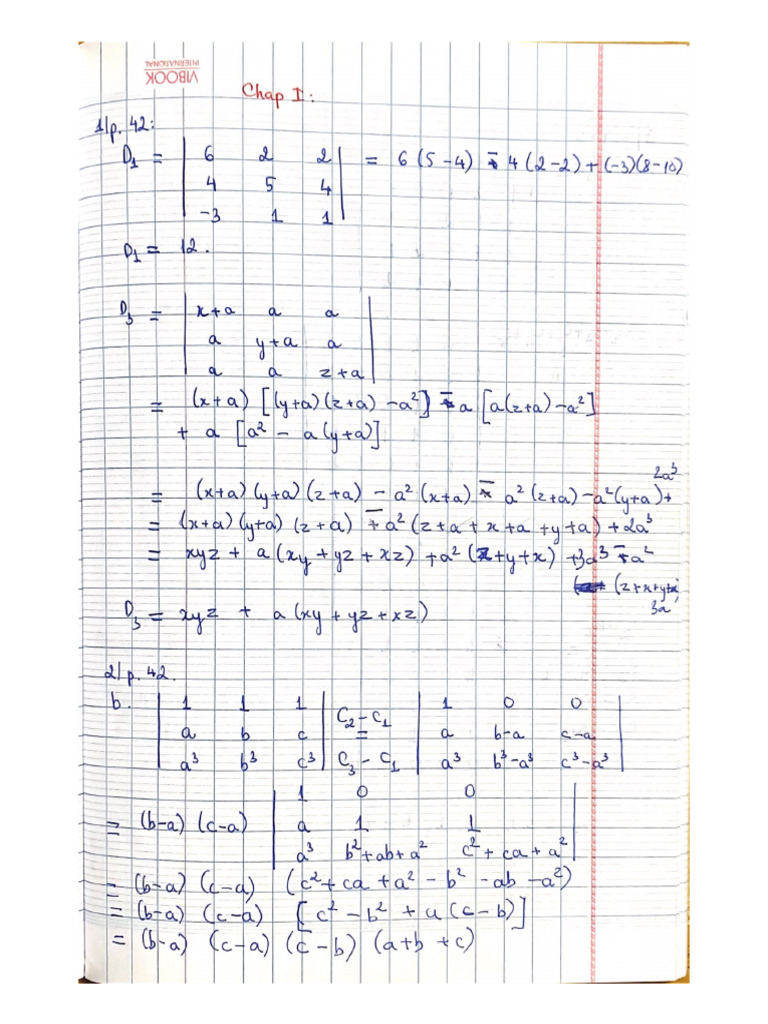 VIBOOK
INTERNATIONAL
Chap I:
1/p. 42:
D₁ = | 6 2 2 | = 6(5-4) - 4(2-2) + (-3)(8-10)
| 4 5 4 |
| -3 1 1 |
D₁ = 12.
D₃ = | x+a a a |
| a y+a a |
| a a z+a |
= (x+a) [(y+a)(z+a) - a²] - a [a(z+a) - a²]
+ a [a² - a(y+a)]
= (x+a)(y+a)(z+a) - a²(x+a) - a²(z+a) - a²(y+a) + 2a³
= (x+a)(y+a)(z+a) - a²(z+a+x+a+y+a) + 2a³
= xyz + a(xy+yz+xz) + a²(z+y+x) + 3a³ - a²
(z+x+y+
3a
D₃ = xyz + a(xy+yz+xz)
2/p. 42.
b. | 1 1 1 | C₂-C₁ | 1 0 0 |
| a b c | = | a b-a c-a |
| a³ b³ c³ | C₃-C₁ | a³ b³-a³ c³-a³ |
= (b-a)(c-a) | 1 0 0 |
| a 1 1 |
| a³ b²+ab+a² c²+ca+a² |
= (b-a)(c-a)(c²+ca+a²-b²-ab-a²)
= (b-a)(c-a)[c²-b²+a(c-b)]
= (b-a)(c-a)(c-b)(a+b+c)